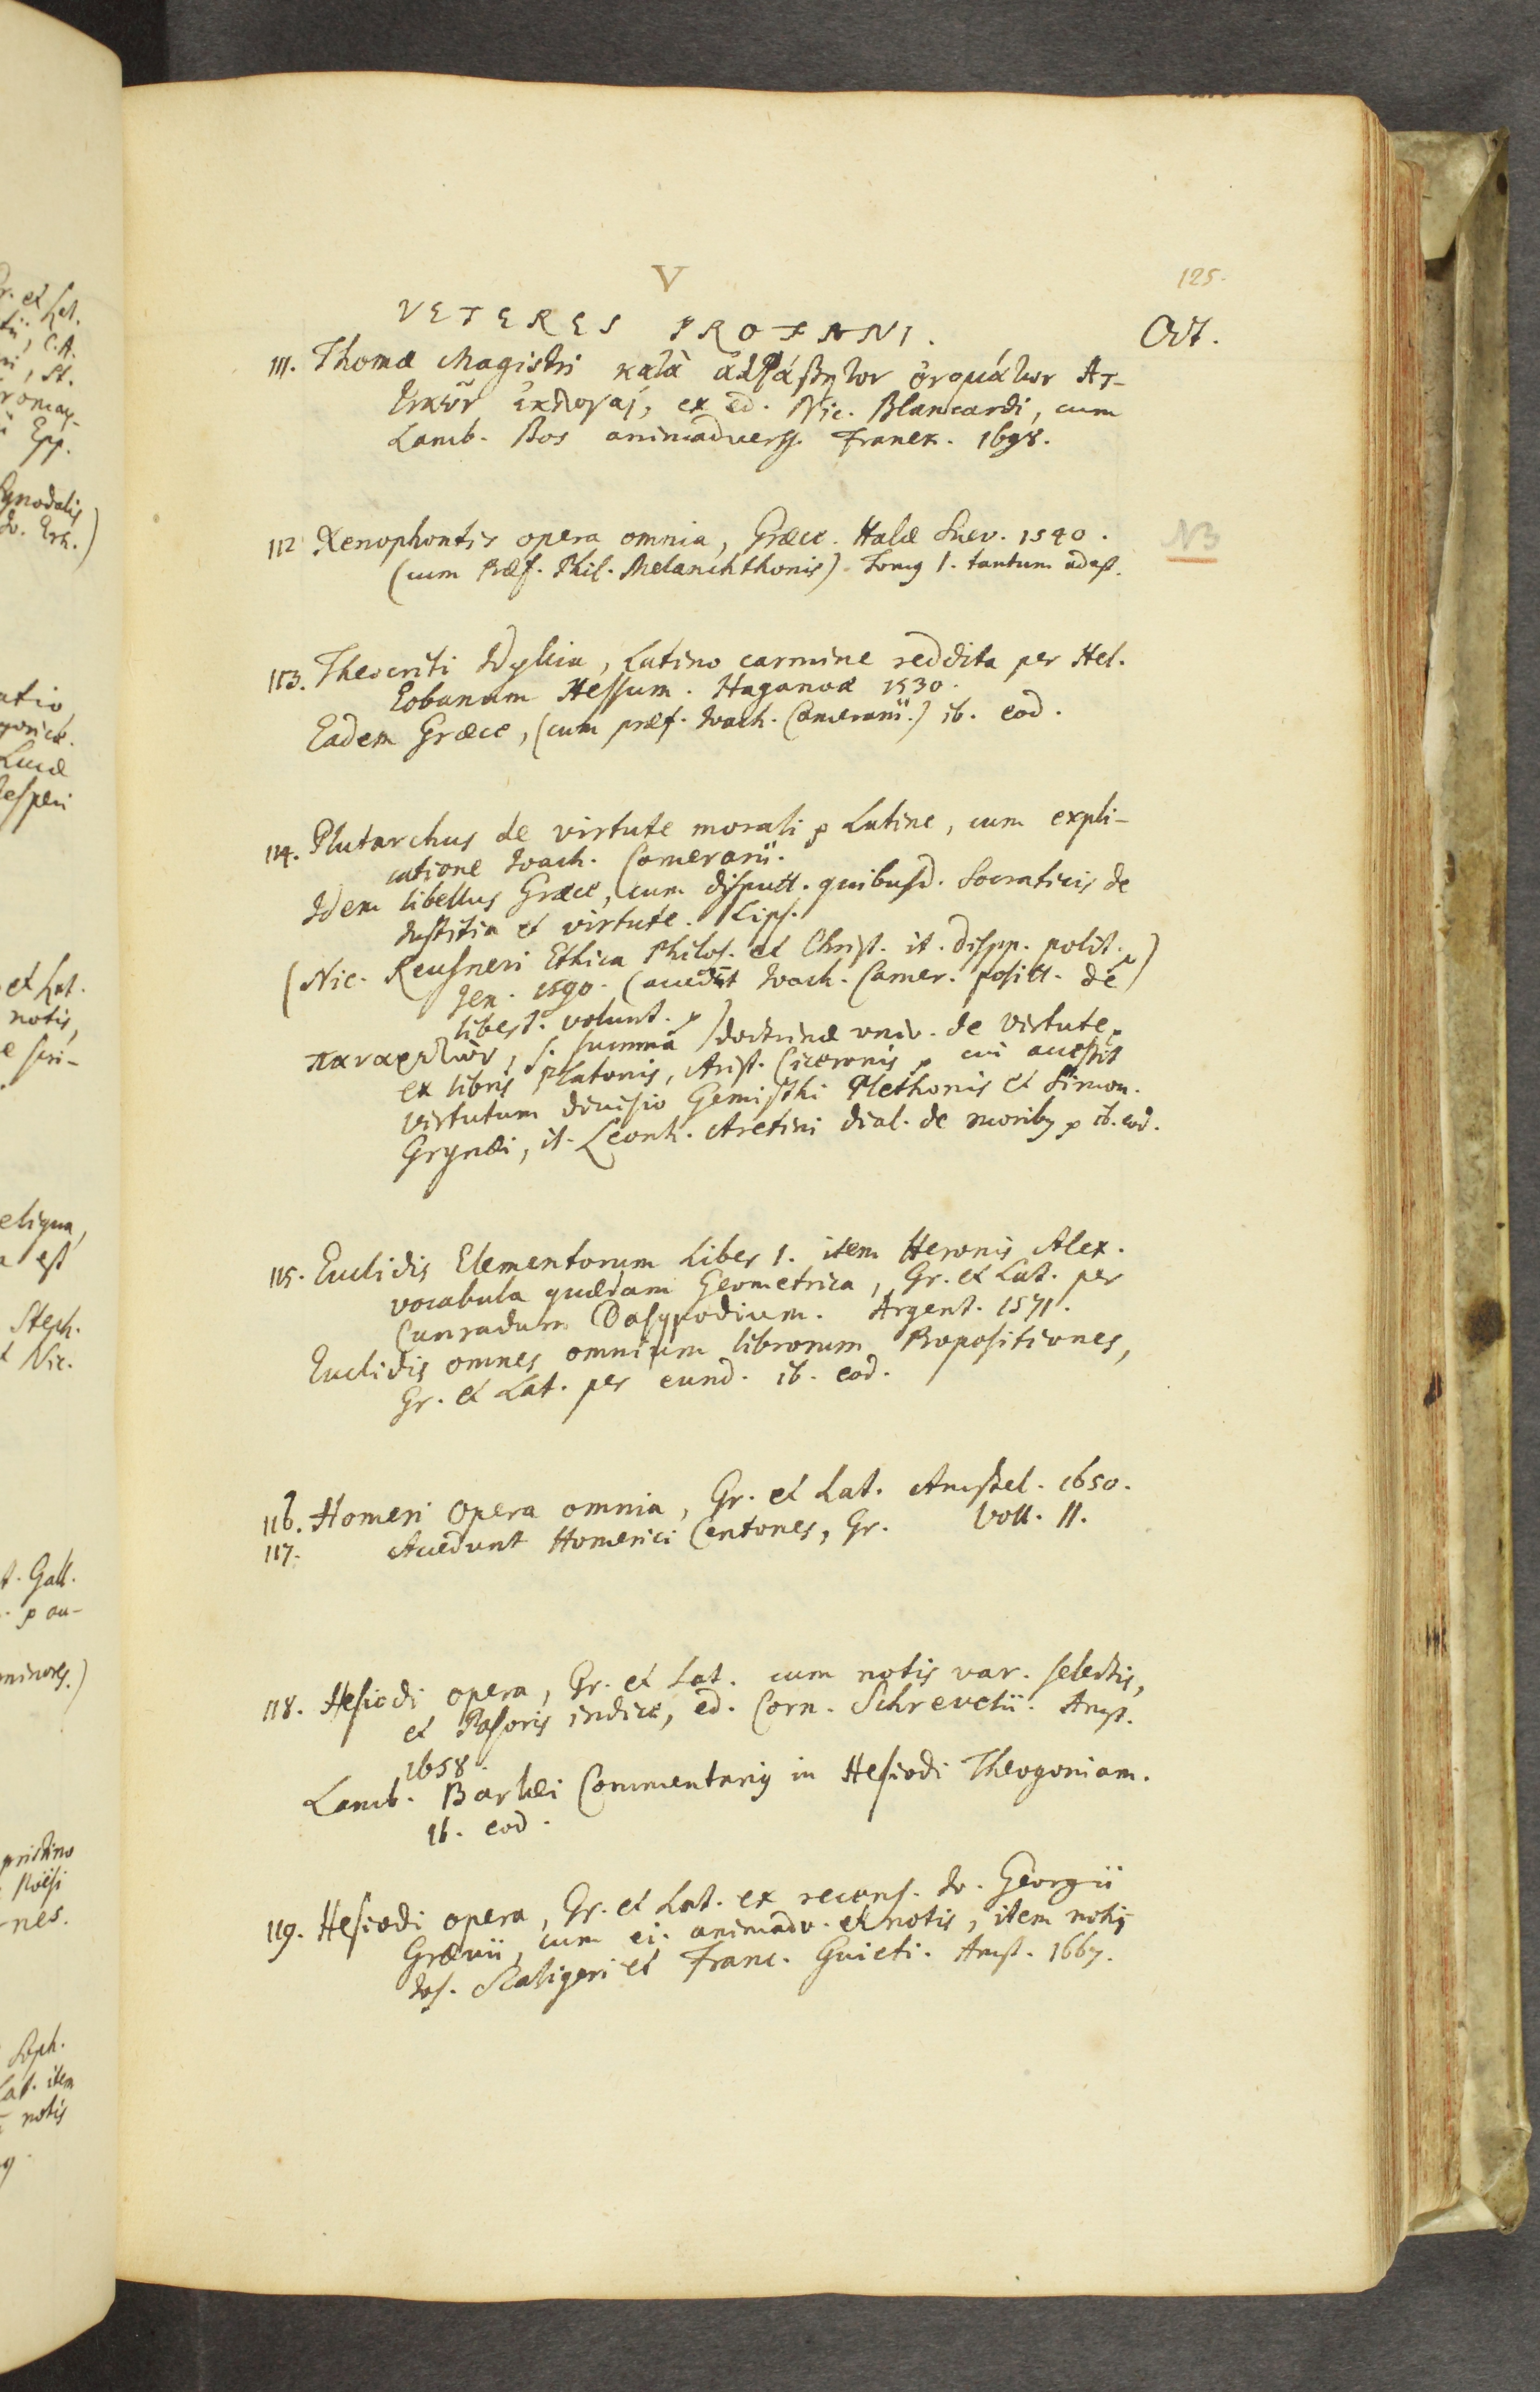 V
125.
VETERES PROFANI.
Oct.
111. Thomæ Magistri κατὰ ἀλφάβητον ὀνομάτων Ἀτ-
τικῶν ἐκλογαὶ, ex ed. Nic. Blancardi, cum
Lamb. Bos animadverss. Franek. 1698.
112 Xenophontis opera omnia, Græce. Halæ Suev. 1540.
NB
(cum Præf. Phil. Melanchthonis). Tomus 1. tantum adest.
113. Theocriti Idyllia, Latino carmine reddita per Hel.
Eobanum Hessum. Haganoæ 1530.
Eadem Græce, (cum præf. Ioach. Camerarii.) ib. eod.
114. Plutarchus de virtute morali p Latine, cum expli-
catione Ioach. Camerarii.
Idem libellus Græce, cum disputt. quibusd. Socraticis de
Iustitia et virtute. Lips.
(Nic. Reusneri Ethica Philos. et Christ. it. dispp. polit. p
Jen. 1590. (accedit Ioach. Camer. positt. de
libert. volunt. p)
παναρετῶν, s. summa doctrinæ univ. de virtute p
ex libris Platonis, Arist. Ciceronis p cui accessit
virtutum divisio Gemisthi Plethonis et Simon.
Grynæi, it. Leonh. Aretini dial. de moribus p ib. eod.
115. Euclidis Elementorum Liber 1. item Heronis Alex.
vocabula quædam Geometrica, Gr. et Lat. per
Cunradum Dasypodium. Argent. 1571.
Euclidis omnes omnium librorum Propositiones,
Gr. et Lat. per eund. ib. eod.
116. Homeri Opera omnia, Gr. et Lat. Amstel. 1650.
117. Accedunt Homerici Centones, Gr. Voll. II.
118. Hesiodi opera, Gr. et Lat. cum notis var. selectis,
et Pasoris indice, ed. Corn. Schrevelii. Amst.
1658.
Lamb. Barlæi Commentarius in Hesiodi Theogoniam.
ib. eod.
119. Hesiodi opera, Gr. et Lat. ex recens. Io. Georgii
Grævii, cum ej. animadv. et notis, item notis
Ios. Scaligeri et Franc. Guieti. Amst. 1667.